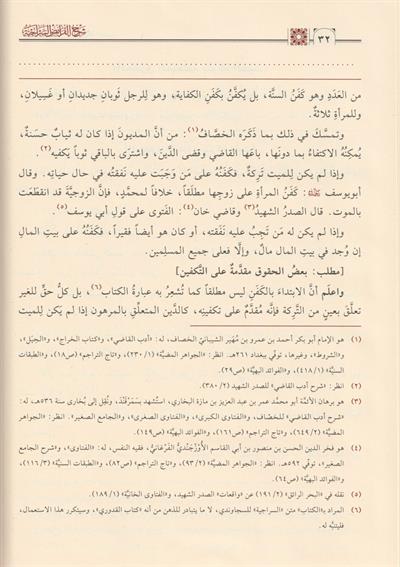 شرح الفرائض السراجية
٣٢
من العَدَدِ وهو كَفَنُ السنَّة، بل يُكفَّنُ بكَفَنِ الكفاية، وهو للرجلِ ثَوبانِ جديدانِ أو غَسِيلانِ،
وللمرأةِ ثلاثةٌ.
وتمسَّكَ في ذلك بما ذكَرَه الخصَّافُ(١): من أنَّ المديونَ إذا كان له ثيابٌ حسَنةٌ،
يُمكِنُهُ الاكتفاءُ بما دونَها، باعَها القاضي وقضى الدَّينَ، واشتَرى بالباقي ثوباً يَكفيه(٢).
وإذا لم يكن للميتِ تَرِكةٌ، فكَفَنُهُ على مَن وَجَبَت عليه نَفَقتُه في حالِ حياتِه. وقال
أبويوسف ﵀: كَفَنُ المرأةِ على زوجِها مطلَقاً، خلافاً لمحمَّدٍ، فإنَّ الزوجيَّةَ قد انقطَعَت
بالموت. قال الصدرُ الشهيدُ(٣) وقاضي خان(٤): الفَتوى على قولِ أبي يوسف(٥).
وإذا لم يكن له مَن تَجِبُ عليه نَفَقتُه، أو كان هو أيضاً فقيراً، فكَفَنُهُ على بيتِ المالِ
إن وُجِدَ في بيتِ المالِ مالٌ، وإلَّا فعلى جميعِ المسلِمين.
[مطلب: بعضُ الحقوق مقدَّمةٌ على التَّكفين]
واعلَم أنَّ الابتداءَ بالكَفَنِ ليس مطلقاً كما تُشعِرُ به عبارةُ الكتاب(٦)، بل كلُّ حقٍّ للغير
تعلَّقَ بعينٍ من التَّرِكة فإنَّه مُقدَّمٌ على تكفينِه، كالدَّين المتعلِّقِ بالمرهون إذا لم يَكن للميتِ
(١) هو الإمام أبو بكر أحمد بن عمرو بن مُهَير الشيبانيّ الخصاف، له: «أدب القاضي»، و«كتاب الخراج»، و«الحِيَل»،
و«الشروط»، وغيرها، توفي ببغداد ٢٦١هـ. انظر: «الجواهر المضيَّة» (١/ ٢٣٠)، و«تاج التراجم» (ص١٨)، و«الطبقات
السنيَّة» (١/ ٤١٨)، و«الفوائد البهيَّة» (ص٢٩).
(٢) انظر: «شرح أدب القاضي» للصدر الشهيد (٢/ ٣٨٠).
(٣) هو برهان الأئمَّة أبو محمَّد عمر بن عبد العزيز بن مازة البخاري، استُشهد بسَمَرْقَنْدَ، ونُقِل إلى بُخارى سنة ٥٣٦هـ، له:
«شرح أدب القاضي» للخصّاف، و«الفتاوى الكبرى»، و«الفتاوى الصغرى»، و«الجامع الصغير». انظر: «الجواهر
المضيَّة» (٢/ ٦٤٩)، و«تاج التراجم» (ص١٦١)، و«الفوائد البهيَّة» (ص١٤٩).
(٤) هو فخر الدين الحسن بن منصور بن أبي القاسم الأُوْزْجَنْدِيُّ الفَرْغانيُّ، فقيه النفس، له: «الفتاوى»، و«شرح الجامع
الصغير»، توفّي ٥٩٢هـ. انظر: «الجواهر المضيَّة» (٢/ ٩٣)، و«تاج التراجم» (ص٨٢)، و«الطبقات السنيَّة» (٣/ ١١٦)،
و«الفوائد البهيَّة» (ص٦٤).
(٥) نقله في «البحر الرائق» (٢/ ١٩١) عن «واقعات» الصدر الشهيد، و«الفتاوى الخانيَّة» (١/ ١٨٩).
(٦) المراد بـ«الكتاب» متن «السراجية» للسجاوندي، لا ما يتبادر للذهن من أنه «كتاب القدوري»، وسيتكرر هذا الاستعمال،
فليتنبَّه له.